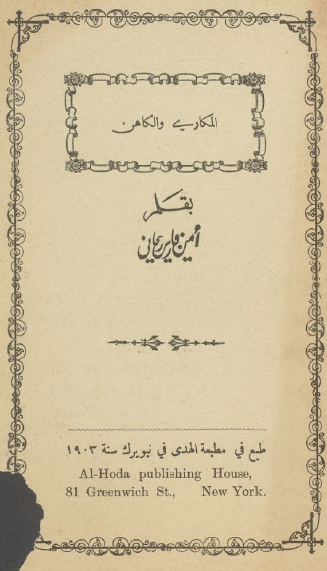 المكاري والكاهن
بقلم
امين فارس ريحاني
طبع في مطبعة الهدى في نيويرك سنة ١٩٠٣
Al-Hoda publishing House,
81 Greenwich St., New York.